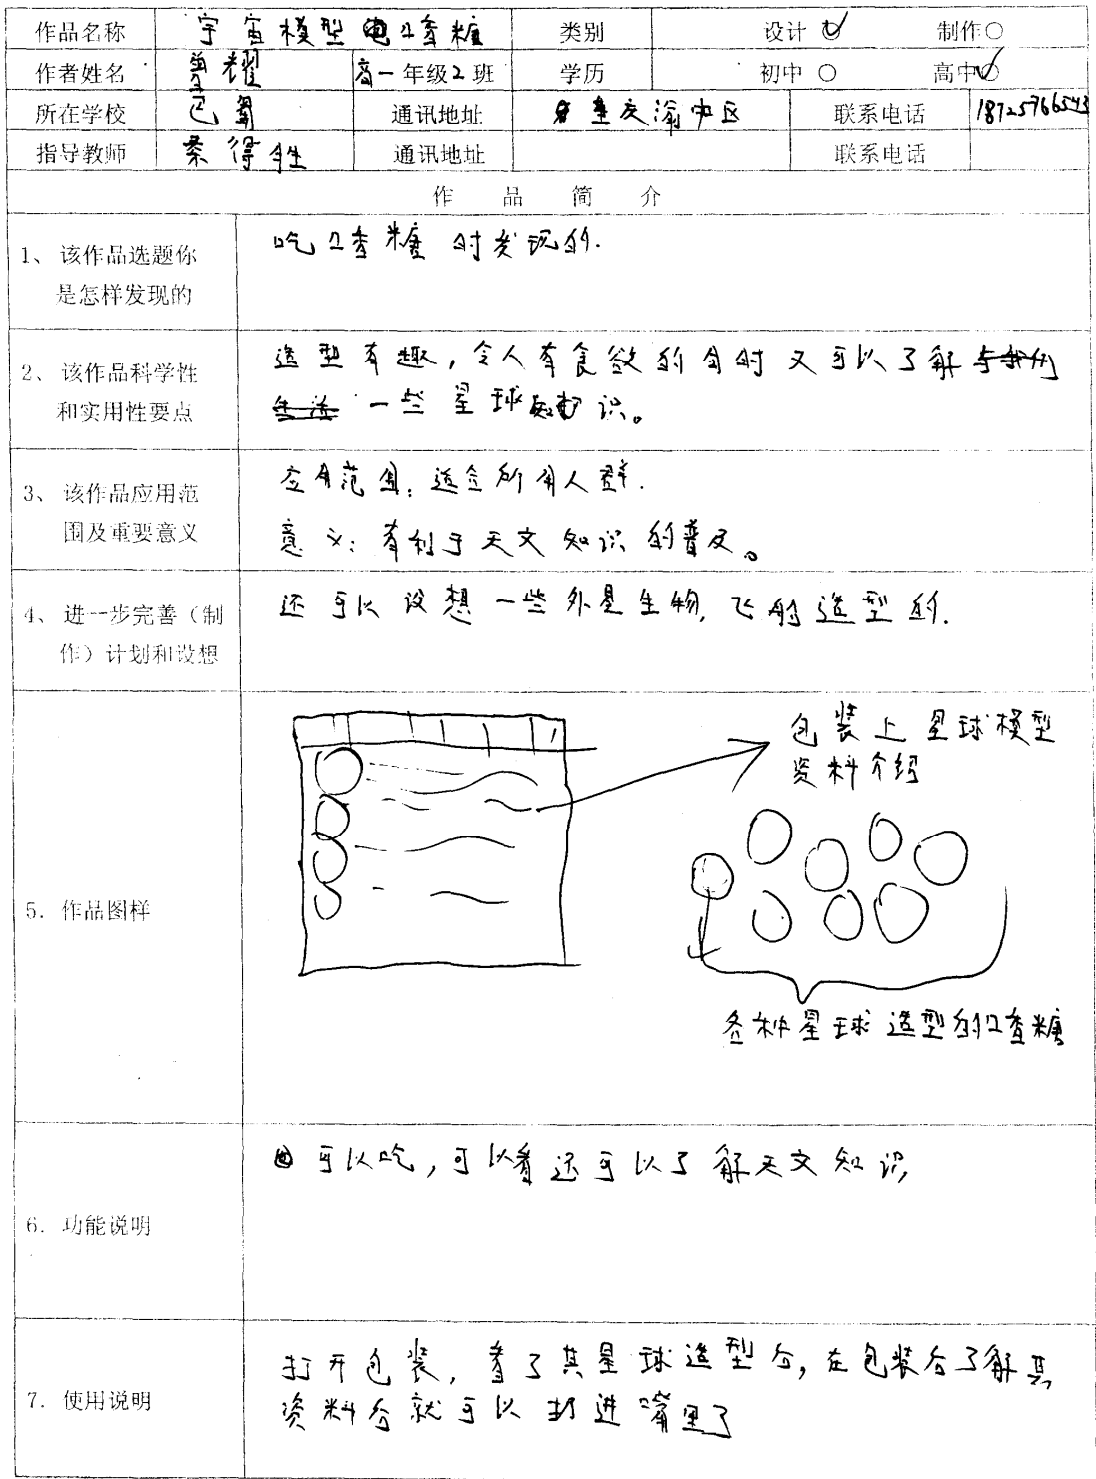 作品名称 宇宙模型口香糖 类别 设计 制作
作者姓名 曾耀 高一年级2班 学历 初中 高中
所在学校 巴蜀 通讯地址 重庆渝中区 联系电话 18725766543
指导教师 秦得胜 通讯地址 联系电话
作品简介
1、该作品选题你
是怎样发现的
吃口香糖时发现的.
2、该作品科学性
和实用性要点
造型有趣,令人有食欲的同时又可以了解与我们
生活一些星球知识。
3、该作品应用范
围及重要意义
应用范围:适合所有人群.
意义:有利于天文知识的普及。
4、进一步完善(制
作)计划和设想
还可以设想一些外星生物,飞船造型的.
5. 作品图样
包装上星球模型
资料介绍
各种星球造型的口香糖
6. 功能说明
可以吃,可以看还可以了解天文知识
7. 使用说明
打开包装,看了其星球造型后,在包装后了解其
资料后就可以扔进嘴里了